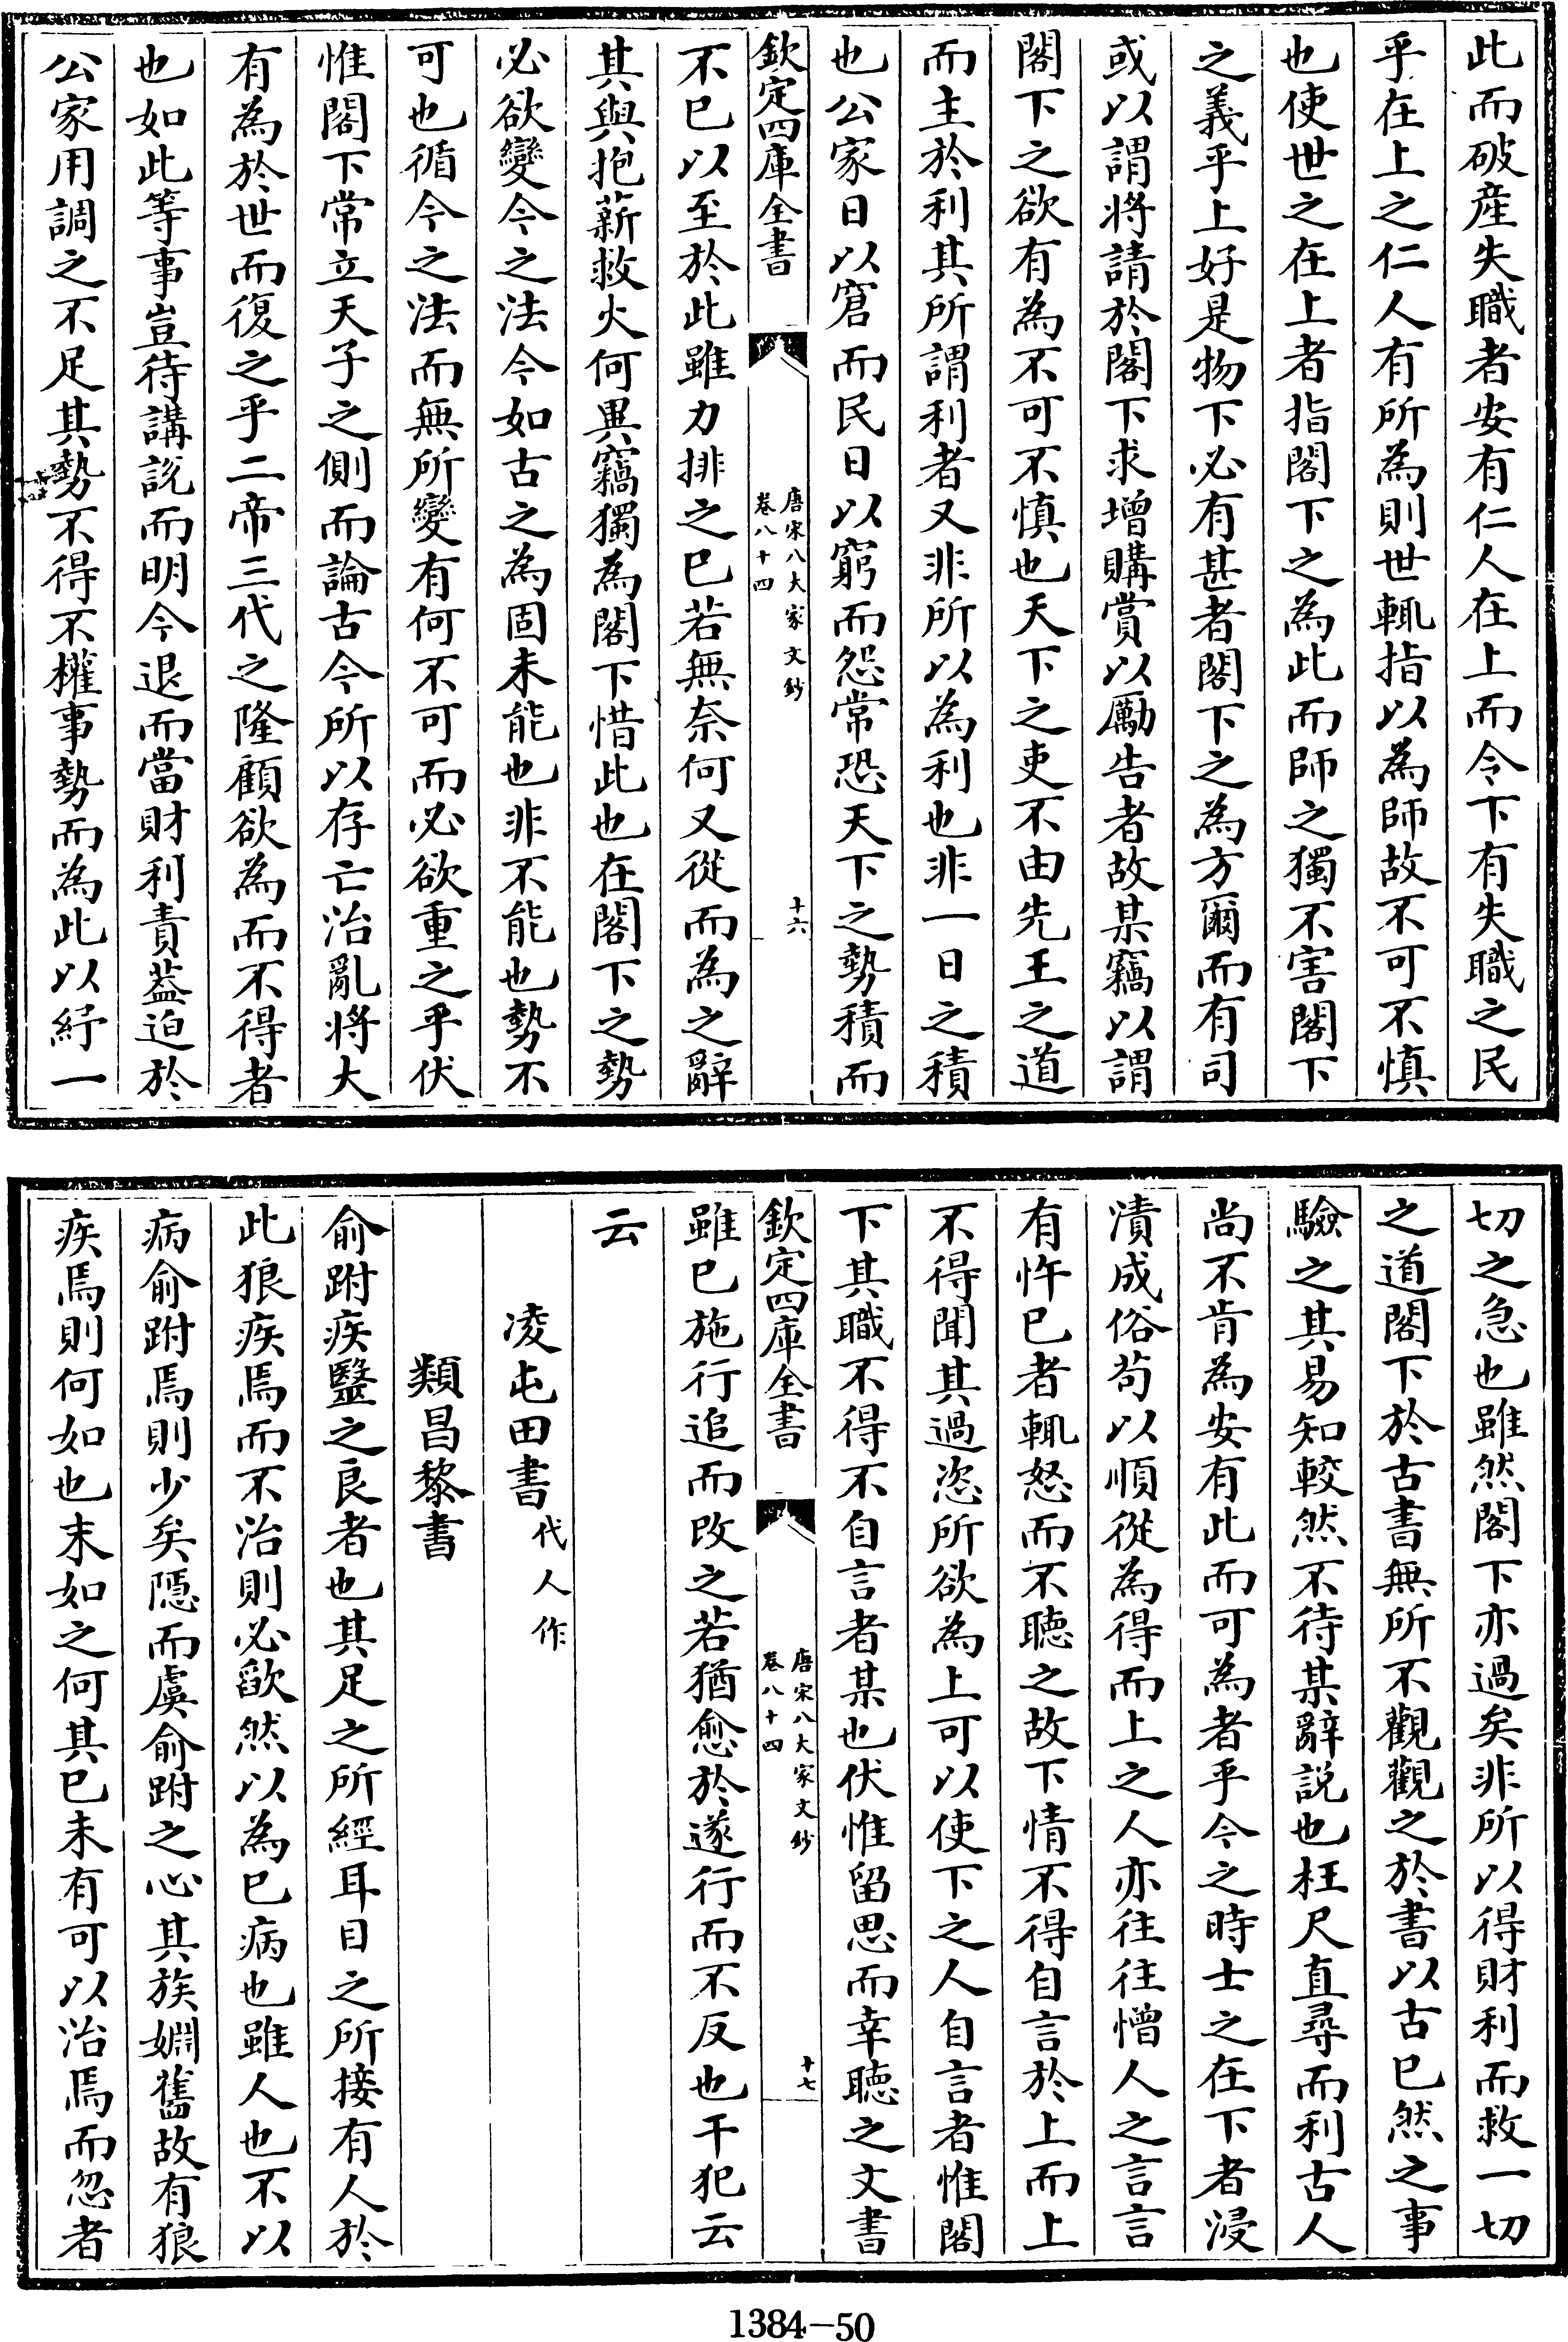 此而破産失職者安有仁人在上而令下有失職之民
乎在上之仁人有所為則世輒指以為師故不可不慎
也使世之在上者指閣下之為此而師之獨不害閣下
之義乎上好是物下必有甚者閣下之為方爾而有司
或以謂將請於閣下求增購賞以勵告者故某竊以謂
閣下之欲有為不可不慎也天下之吏不由先王之道
而主於利其所謂利者又非所以為利也非一日之積
也公家日以窘而民日以窮而怨常恐天下之勢積而
欽定四庫全書
唐宋八大家文鈔
卷八十四
十六
不已以至於此雖力排之已若無奈何又從而為之辭
其與抱薪救火何異竊獨為閣下惜此也在閣下之勢
必欲變今之法令如古之為固未能也非不能也勢不
可也循今之法而無所變有何不可而必欲重之乎伏
惟閣下常立天子之側而論古今所以存亡治亂將大
有為於世而復之乎二帝三代之隆顧欲為而不得者
也如此等事豈待講說而明今退而當財利責葢迫於
公家用調之不足其勢不得不權事勢而為此以紓一
切之急也雖然閣下亦過矣非所以得財利而救一切
之道閣下於古書無所不觀觀之於書以古已然之事
驗之其易知較然不待某辭説也枉尺直尋而利古人
尚不肯為安有此而可為者乎今之時士之在下者浸
漬成俗苟以順從為得而上之人亦往往憎人之言言
有忤已者輒怒而不聽之故下情不得自言於上而上
不得聞其過恣所欲為上可以使下之人自言者惟閣
下其職不得不自言者某也伏惟留思而幸聽之文書
欽定四庫全書
唐宋八大家文鈔
卷八十四
十七
雖已施行追而改之若猶愈於遂行而不反也干犯云
云
凌屯田書代人作
類昌黎書
俞跗疾毉之良者也其足之所經耳目之所接有人於
此狼疾焉而不治則必欿然以為已病也雖人也不以
病俞跗焉則少矣隱而虞俞跗之心其族婣舊故有狼
疾焉則何如也末如之何其已未有可以治焉而忽者
1384-50